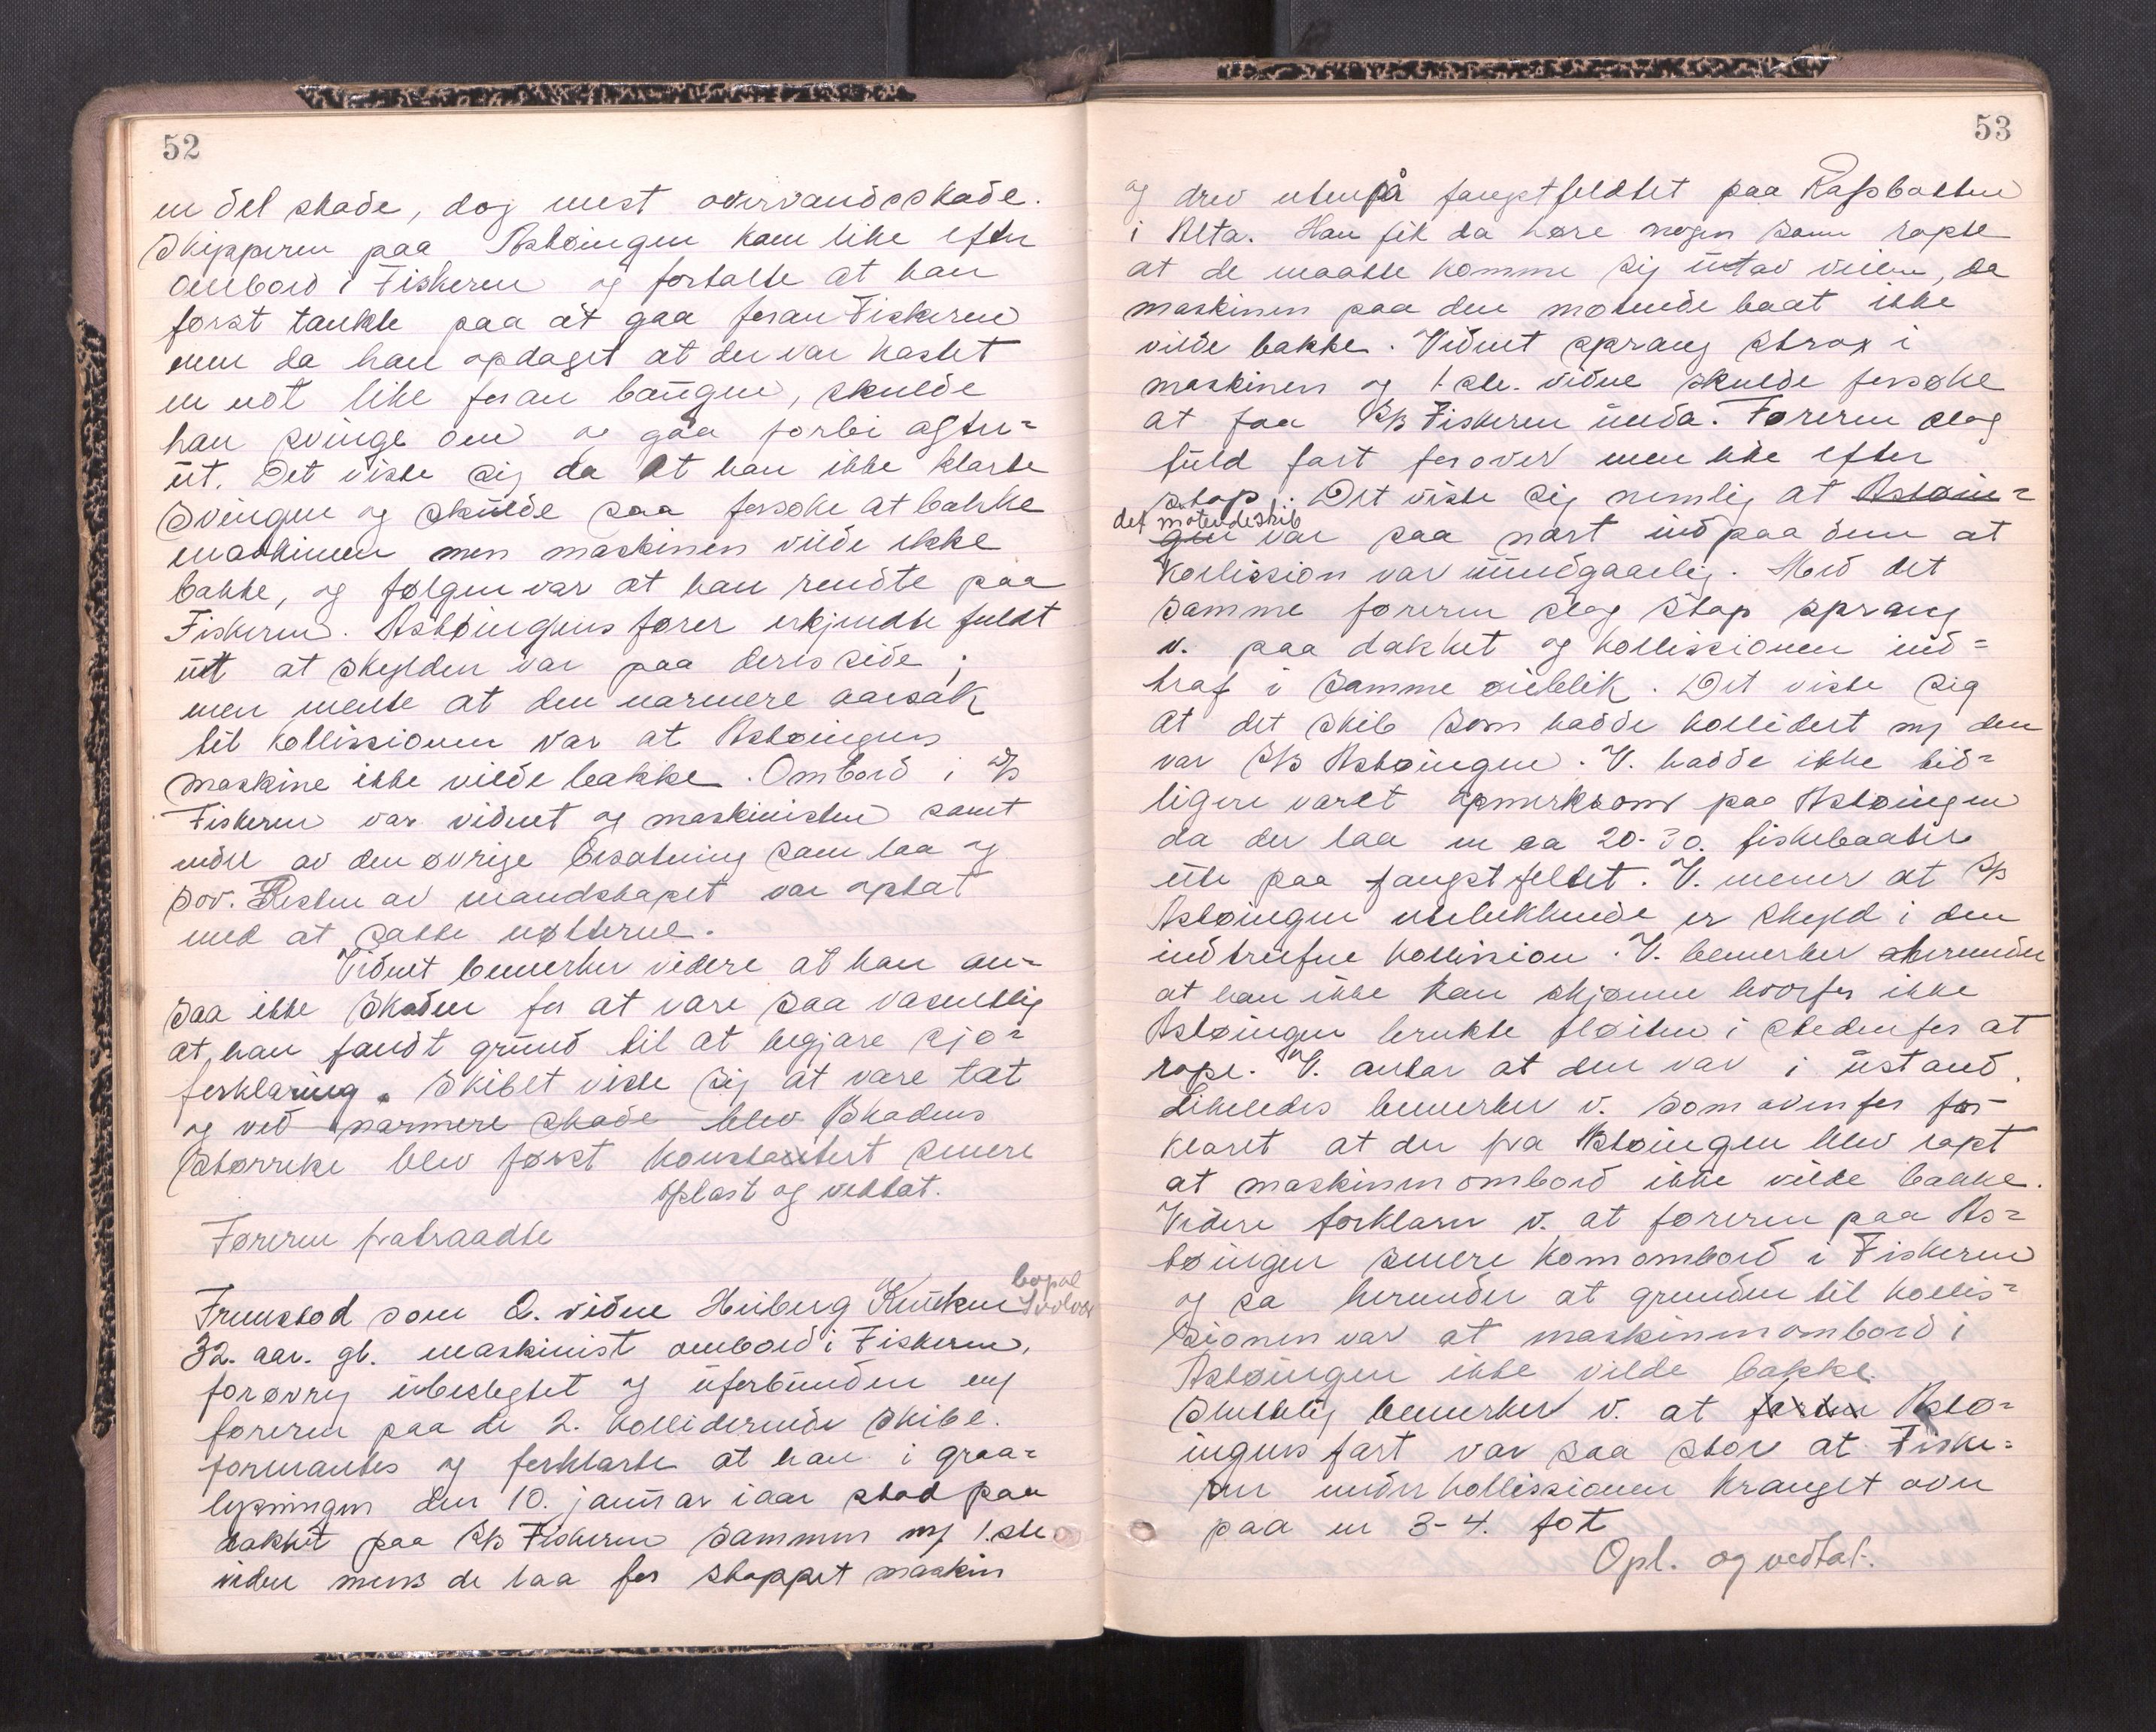 52
en del skade, dog mest overvandsskade.
Skipperen paa Astøingen kom like efter
ombord i Fiskeren og fortalte at han
først tænkte paa at gaa foran Fiskeren
men da han opdaget at der var kastet
en not like foran baugen, skulde
han svinge om og gaa forbi agten=
ut. Det viste sig da at han ikke klarte
svingen og skulde saa forsøke at bakke
maskinen men maskinen vilde ikke
bakke, og følgen var at han rendte paa
Fiskeren. Astøingens fører erkjendte fuldt
ut at skylden var paa deres side;
men mente at den nærmere aarsak
til kollissionen var at Astøingens
maskine ikke vilde bakke. Ombord i S/S
Fiskeren var vidnet og maskinisten samt
endel av den øvrige besætning som laa og
sov. Resten av mandskapet var optat
med at sætte nøtterne.
Vidnet bemerker videre at han an=
saa ikke skaden for at være saa væsentlig
at han fandt grund til at begjære sjø=
forklaring. Skibet viste sig at være tæt
og ved nærmere skade blev skadens
størrelse blev først konstatert senere
Oplæst og vedtat.
Føreren fratraadte
Fremstod som 2. vidne Heiberg Knutsen bopæl
Svolvær
32. aar. gl. maskinist ombord i Fiskeren,
forøvrig ubeslegtet og uforbunden m/
føreren paa de 2. kolliderende skibe.
formantes og forklarte at han i graa=
lysningen den 10. januar iaar stod paa
dækket paa S/S Fiskeren sammen m/ 1.ste
vidne mens de laa for stoppet maskin
53
og drev utenpå fangstfeldtet paa Rafsbotten
i Alta. Han fik da høre nogen som ropte
at de maatte komme sig utav veien, da
maskinen paa den møtende baat ikke
vilde bakke. Vidnet sprang strax i
maskinen og 1.ste. vidne skulde forsøke
at faa S/S Fiskeren unda. Føreren slog
fuld fart forover men like efter
stop. Det viste sig nemlig at Astøin=
det møtende skib
gen var saa nært ind paa dem at
kollission var uundgaaelig. Med det
samme føreren slog stop sprang
v. paa dækket og kollissionen ind=
traf i samme øieblik. Det viste sig
at det skib som hadde kollidert m/ den
var S/S Astøingen. V. hadde ikke tid=
ligere været opmerksom paa Astøingen
da der laa en ca 20-30. fiskebaater
ute paa fangstfeltet. V. mener at S/S
Astøingen utelukkende er skyld i den
indtrufne kollission. V. bemerker herunder
at han ikke kan skjønne hvorfor ikke
Astøingen brukte fløiten i stedenfor at
rope. V. antar at den var i ustand.
Likeledes bemerker v. som ovenfor for=
klaret at der fra Astøingen blev ropt
at maskinen ombord ikke vilde bakke.
Videre forklarer v. at føreren paa As=
tøingen senere kom ombord i Fiskeren
og sa herunder at grunden til kollis=
sionen var at maskinen ombord i
Astøingen ikke vilde bakke.
Sluttelig bemerker v. at Astø=
ingens fart var saa stor at Fiske=
ren under kollissionen krænget over
paa en 3-4. fot
Opl. og vedtat.